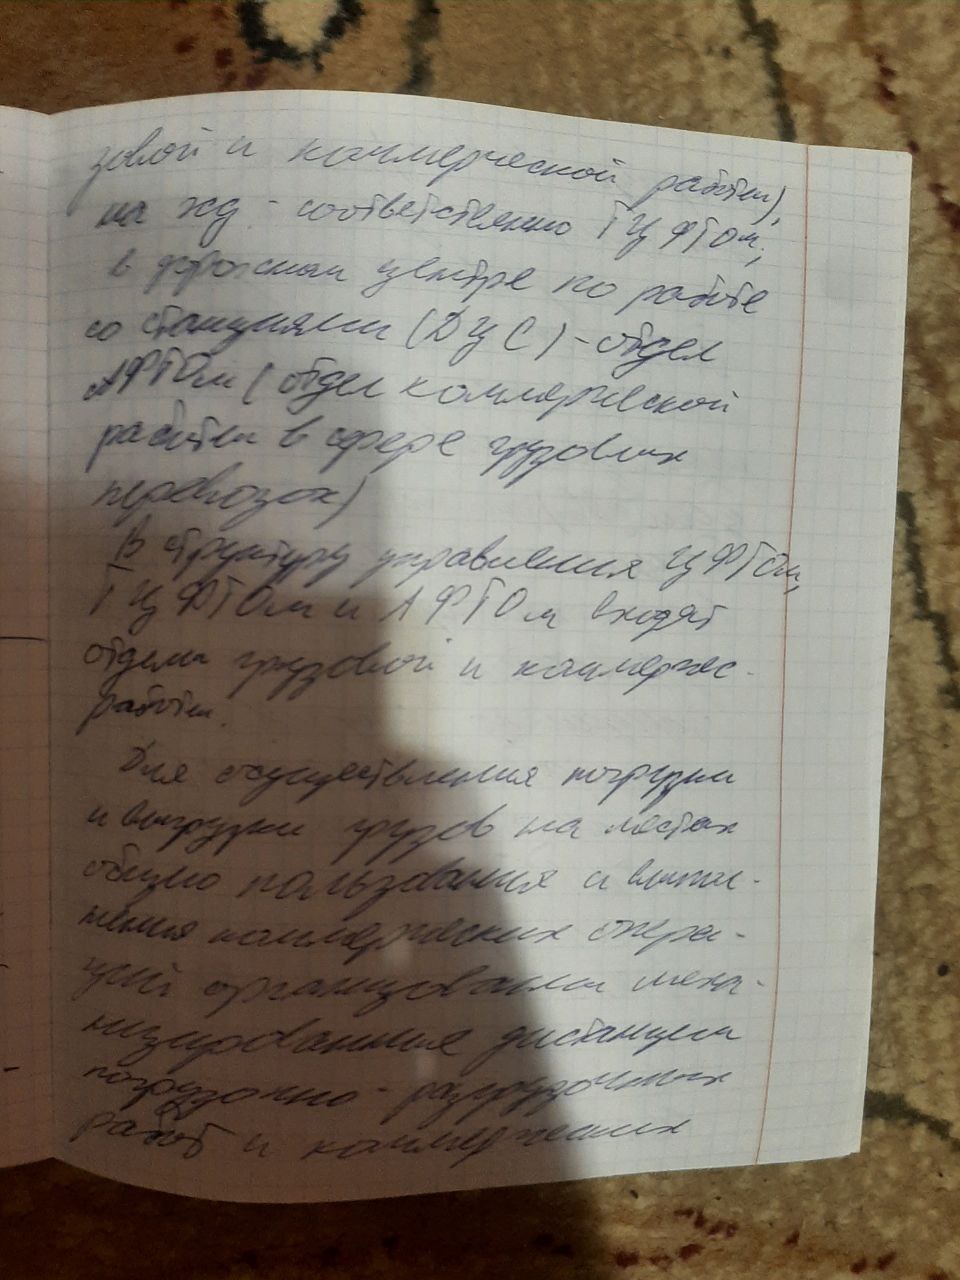 зовой и коммерческой работы),
на жд - соответственно ТЦФТОм;
в дорожном центре по работе
со станциями (ДЦС) - отдел
АФТОм (отдел коммерческой
работы в сфере грузовых
перевозок)
В структуру управления ЦФТОм,
ТЦФТОм и АФТОм входят
отделы грузовой и коммерчес.
работы.
Для осуществления погрузки
и выгрузки грузов на местах
общего пользования и выпол-
нения коммерческих опера-
ций организованы меха-
низированные дистанции
погрузочно-разгрузочных
работ и коммерческих